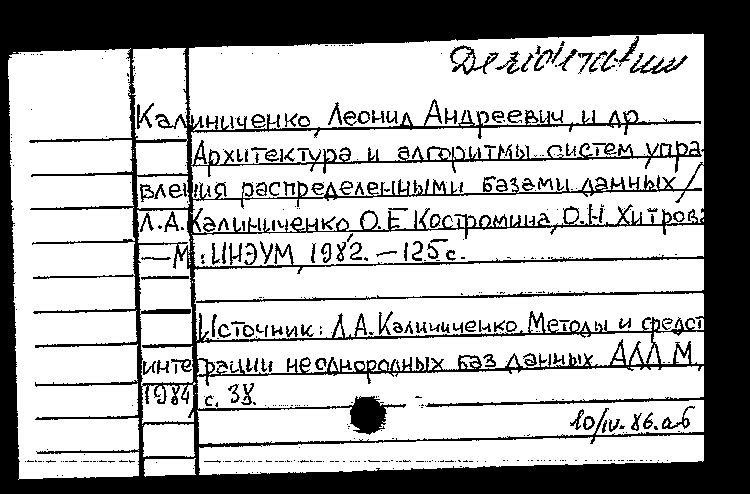 Desideratum
Калиниченко, Леонид Андреевич, и др.
Архитектура и алгоритмы систем упра-
вления распределенными базами данных /
Л.А. Калиниченко, О.Е. Костромина, О.Н. Хитрова
— М.: ИНЭУМ, 1982. — 125 с.
Источник: Л.А. Калиниченко. Методы и средст
интеграции неоднородных баз данных. АДД. М.,
1984, с. 38.
10/IV-86. аб